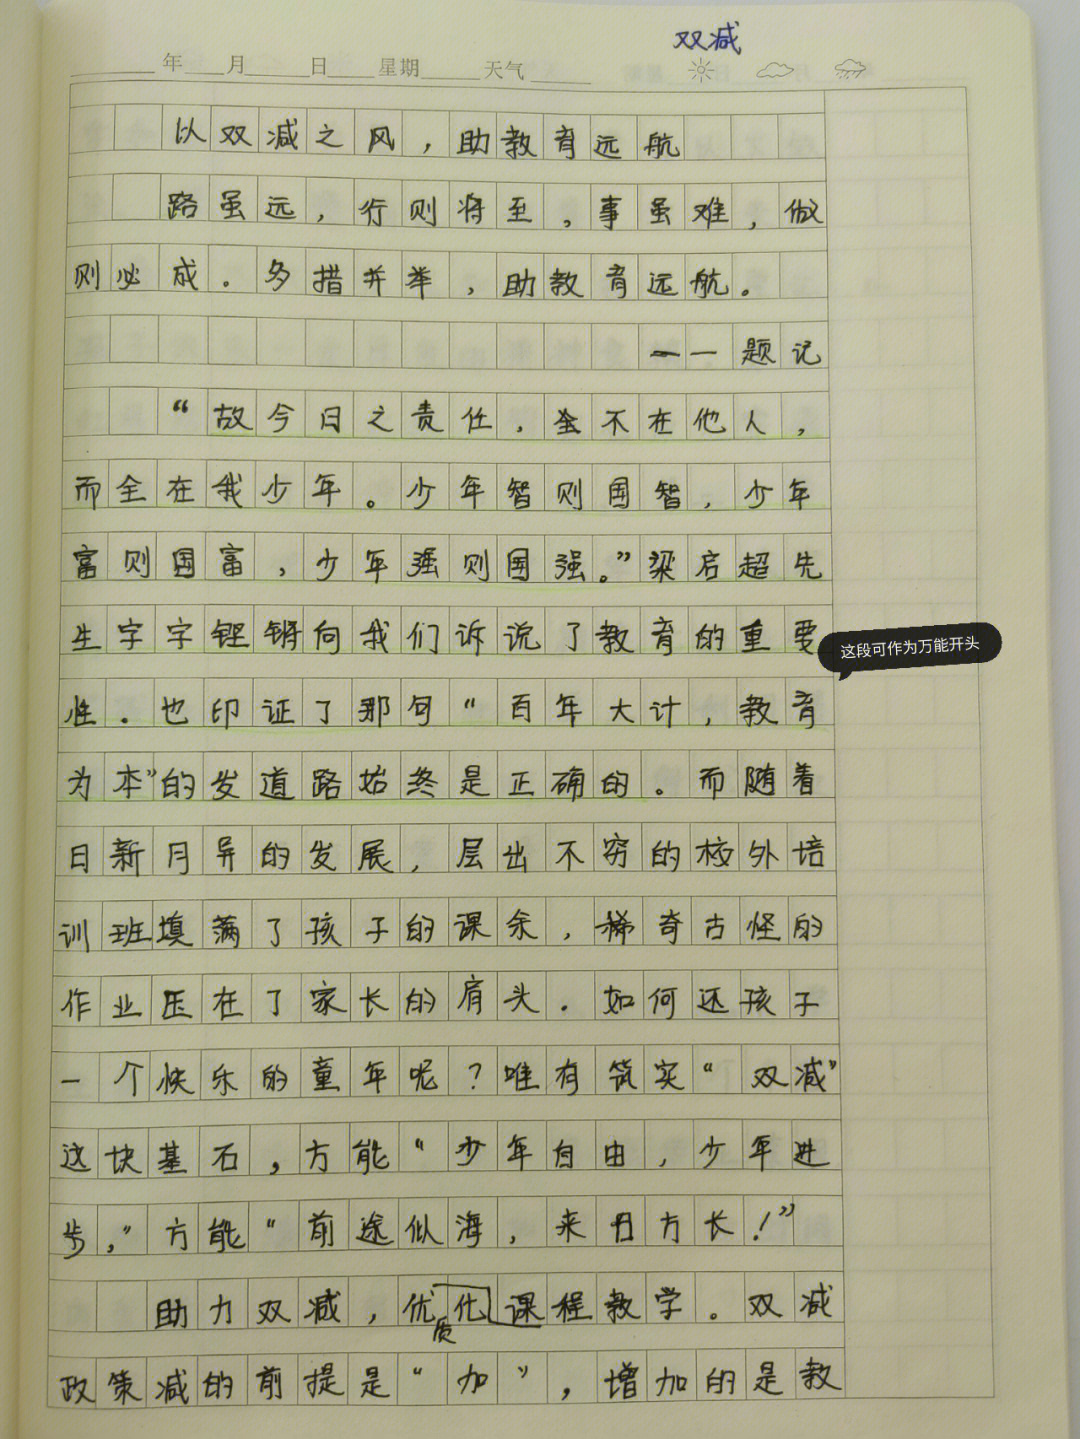 双减
年 月 日 星期 天气
以双减之风，助教育远航
路虽远，行则将至，事虽难，做
则必成。多措并举，助教育远航。
——题记
“故今日之责任，全不在他人，
而全在我少年。少年智则国智，少年
富则国富，少年强则国强。”梁启超先
生字字铿锵向我们诉说了教育的重要
这段可作为万能开头
性。也印证了那句“百年大计，教育
为本”的发道路始终是正确的。而随着
日新月异的发展，层出不穷的校外培
训班填满了孩子的课余，稀奇古怪的
作业压在了家长的肩头。如何还孩子
一个快乐的童年呢？唯有筑实“双减”
这块基石，方能“少年自由，少年进
步，”方能“前途似海，来日方长！”
助力双减，优化课程教学。双减
质
政策减的前提是“加”，增加的是教